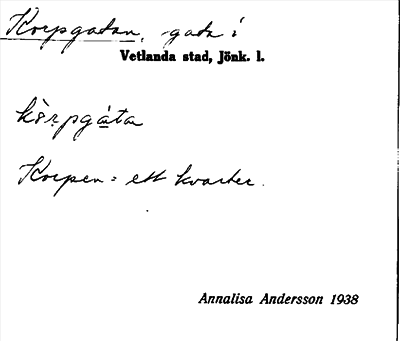 Korpgatan, gata i
Vetlanda stad, Jönk. l.
kòrpgáta
Korpen = ett kvarter.
Annalisa Andersson 1938